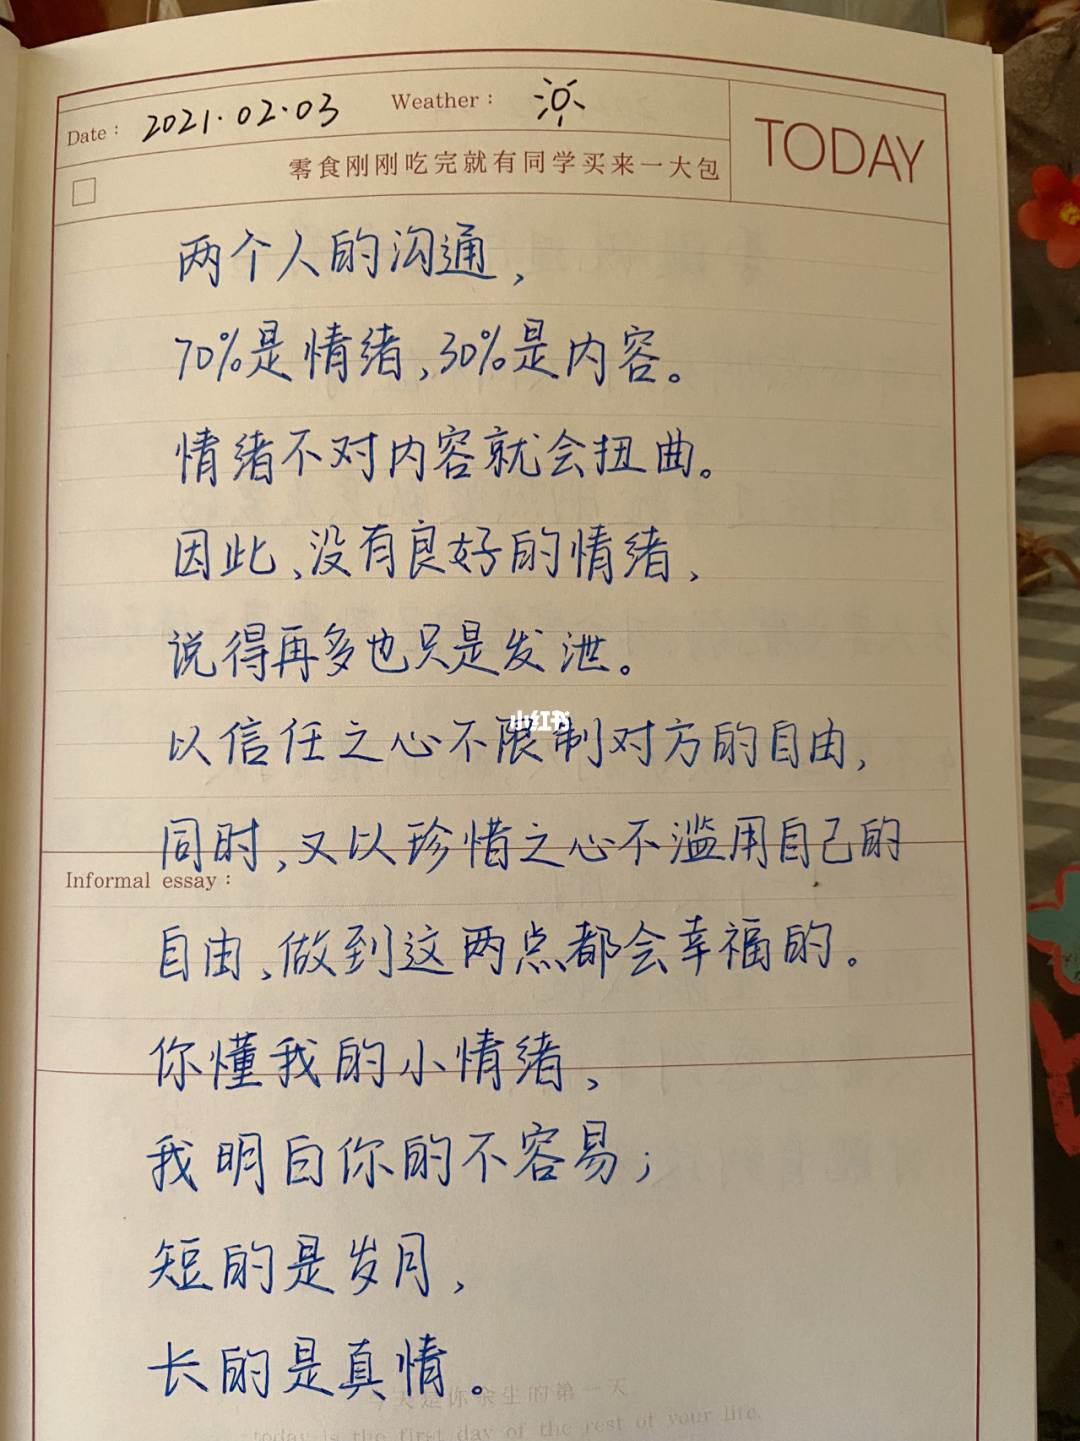 Date： 2021.02.03 Weather：
TODAY
零食刚刚吃完就有同学买来一大包
两个人的沟通，
70%是情绪，30%是内容。
情绪不对内容就会扭曲。
因此，没有良好的情绪，
说得再多也只是发泄。
小红书
以信任之心不限制对方的自由，
同时，又以珍惜之心不滥用自己的
Informal essay：
自由，做到这两点都会幸福的。
你懂我的小情绪，
我明白你的不容易；
短的是岁月，
长的是真情。
今天是你余生的第一天
today is the first day of the rest of your life.